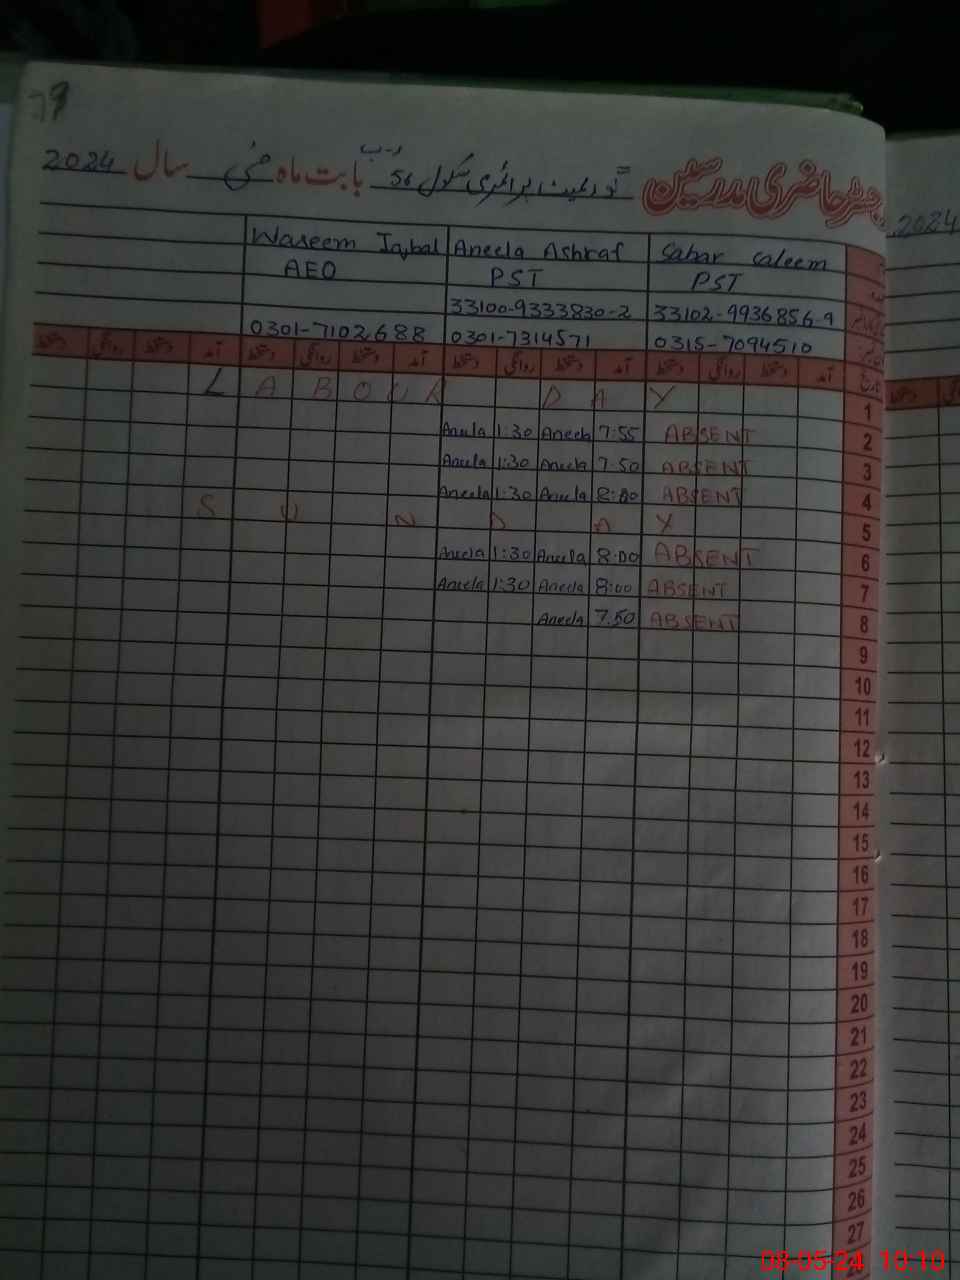 رجسٹر حاضری مدرسین گورنمنٹ پرائمری سکول 56 ر-ب بابت ماہ مئی سال 2024
2024
Waseem Iqbal Aneela Ashraf Sahar Saleem
AEO PST PST
33100-9333830-2 33102-9936856-9
0301-7102688 0301-7314571 0315-7094510
دستخط روانگی دستخط آمد دستخط روانگی دستخط آمد دستخط روانگی دستخط آمد دستخط روانگی دستخط آمد تاریخ
L A B O U R D A Y 1
Aneela 1:30 Aneela 7:55 ABSENT 2
Aneela 1:30 Aneela 7.50 ABSENT 3
Aneela 1:30 Aneela 8:00 ABSENT 4
S U N D A Y 5
Aneela 1:30 Aneela 8:00 ABSENT 6
Aneela 1:30 Aneela 8:00 ABSENT 7
Aneela 7.50 ABSENT 8
9
10
11
12
13
14
15
16
17
18
19
20
21
22
23
24
25
26
27
08-05-24 10:10